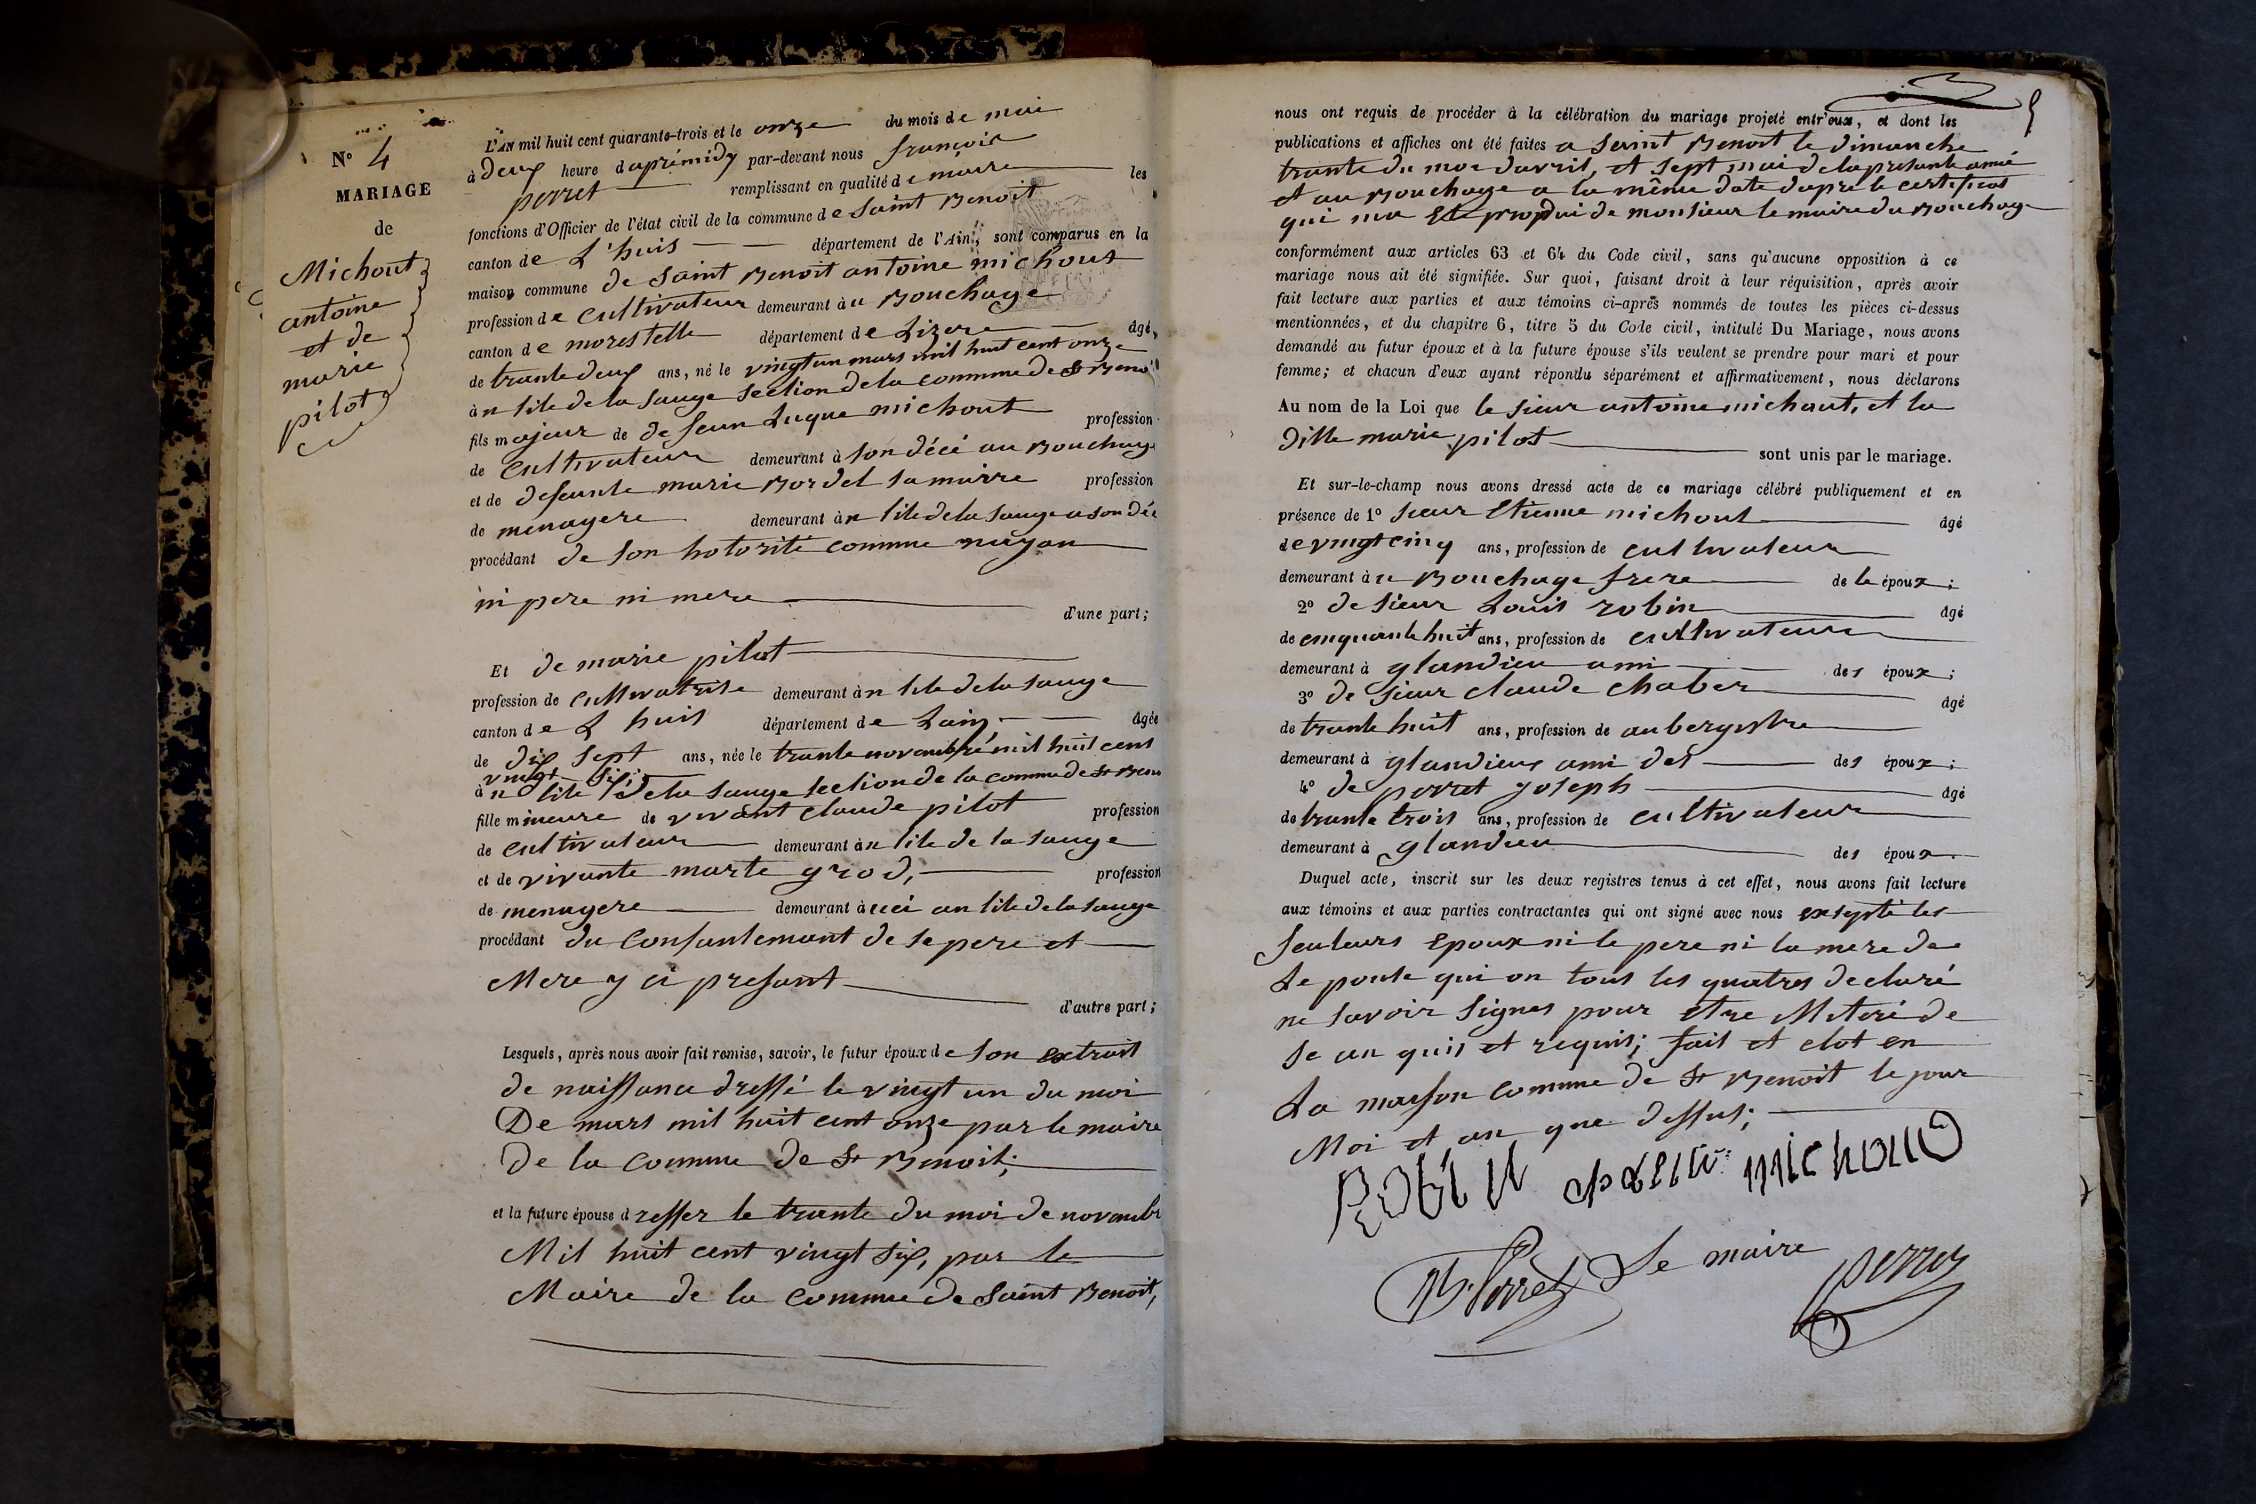 N° 4
MARIAGE
de
Michout
antoine
et de
marie
pilot
L'AN mil huit cent quarante-trois et le onze du mois de mai
à deux heure daprimidy par-devant nous françois
perret remplissant en qualité de maire les
fonctions d'Officier de l'état civil de la commune de saint Benoit
canton de L'huis département de l'Ain, sont comparus en la
maison commune de saint Benoit antoine michout
profession de cultivateur demeurant à u Bouchage
canton de morestelle département de Lizere âgé
de trante deux ans, né le vingt un mars mil huit cent onze
à n lile de la sauge section de la commune de St Benoi
fils majeur de de feun Luque michout profession
de cultivateur demeurant à son décé au Bouchage
et de defeunte marie Bordel sa mairre profession
de menagere demeurant à n lile de la sauge a son déc
procédant de son hotorité comme nayan
ni pere ni mere d'une part;
Et de marie pilot
profession de cultivatrise demeurant à n lile de la sauge
canton de L huis département de Lain âgée
de dix sept ans, née le trante novanbre mil huit cent
vingt six
à n lile de la sauge section de la commune de St Benoi
fille mineure de vivant claude pilot profession
de cultivateur demeurant à n lile de la sauge
et de vivante marte grod, profession
de menagere demeurant à uci an lile de la sauge
procédant du consantemant de se pere et
Mere y ci presant d'autre part;
Lesquels, après nous avoir fait remise, savoir, le futur époux de son extrait
de naissance dressé le vingt un du moi
De mars mil huit cent onze par le maire
De la commune de St Benoit;
et la future épouse dresser le trante du moi de novanbr
Mil huit cent vingt six, par le
Maire de la commune de saint Benoit,
5
nous ont requis de procéder à la célébration du mariage projeté entr'eux, et dont les
publications et affiches ont été faites a saint Benoit le dimanche
trante du moi davril, et sept mai de la presante anné
et au Bouchage a la même date dapre le certificat
qui ma ete produi de monsieur le maire du Bouchage
conformément aux articles 63 et 64 du Code civil, sans qu'aucune opposition à ce
mariage nous ait été signifiée. Sur quoi, faisant droit à leur réquisition, après avoir
fait lecture aux parties et aux témoins ci-après nommés de toutes les pièces ci-dessus
mentionnées, et du chapitre 6, titre 5 du Code civil, intitulé Du Mariage, nous avons
demandé au futur époux et à la future épouse s'ils veulent se prendre pour mari et pour
femme; et chacun d'eux ayant répondu séparément et affirmativement, nous déclarons
Au nom de la Loi que le sieur antoine michout, et la
dille marie pilot sont unis par le mariage.
Et sur-le-champ nous avons dressé acte de ce mariage célébré publiquement et en
présence de 1° sieur Etienne michout âgé
de vingt cinq ans, profession de cultivateur
demeurant à u Bouchage frere de le époux;
2° de sieur Louis robin âgé
de cinquante huit ans, profession de cultivateur
demeurant à glandieu ami des époux;
3° de sieur claude chaber âgé
de trante huit ans, profession de aubergistre
demeurant à glandieu ami des des époux;
4° de perret joseph âgé
de trante trois ans, profession de cultivateur
demeurant à glandieu des époux.
Duquel acte, inscrit sur les deux registres tenus à cet effet, nous avons fait lecture
aux témoins et aux parties contractantes qui ont signé avec nous exsepté les
feuteurs epoux ni le pere ni la mere de
Le pouse qui on tous les quatres declaré
ne savoir signer pour etre de
se an quis et requis; fait et clot en
La maison commune de St Benoit le jour
Moi et an que dessus;
ROBIN michoud
perret Le maire perret